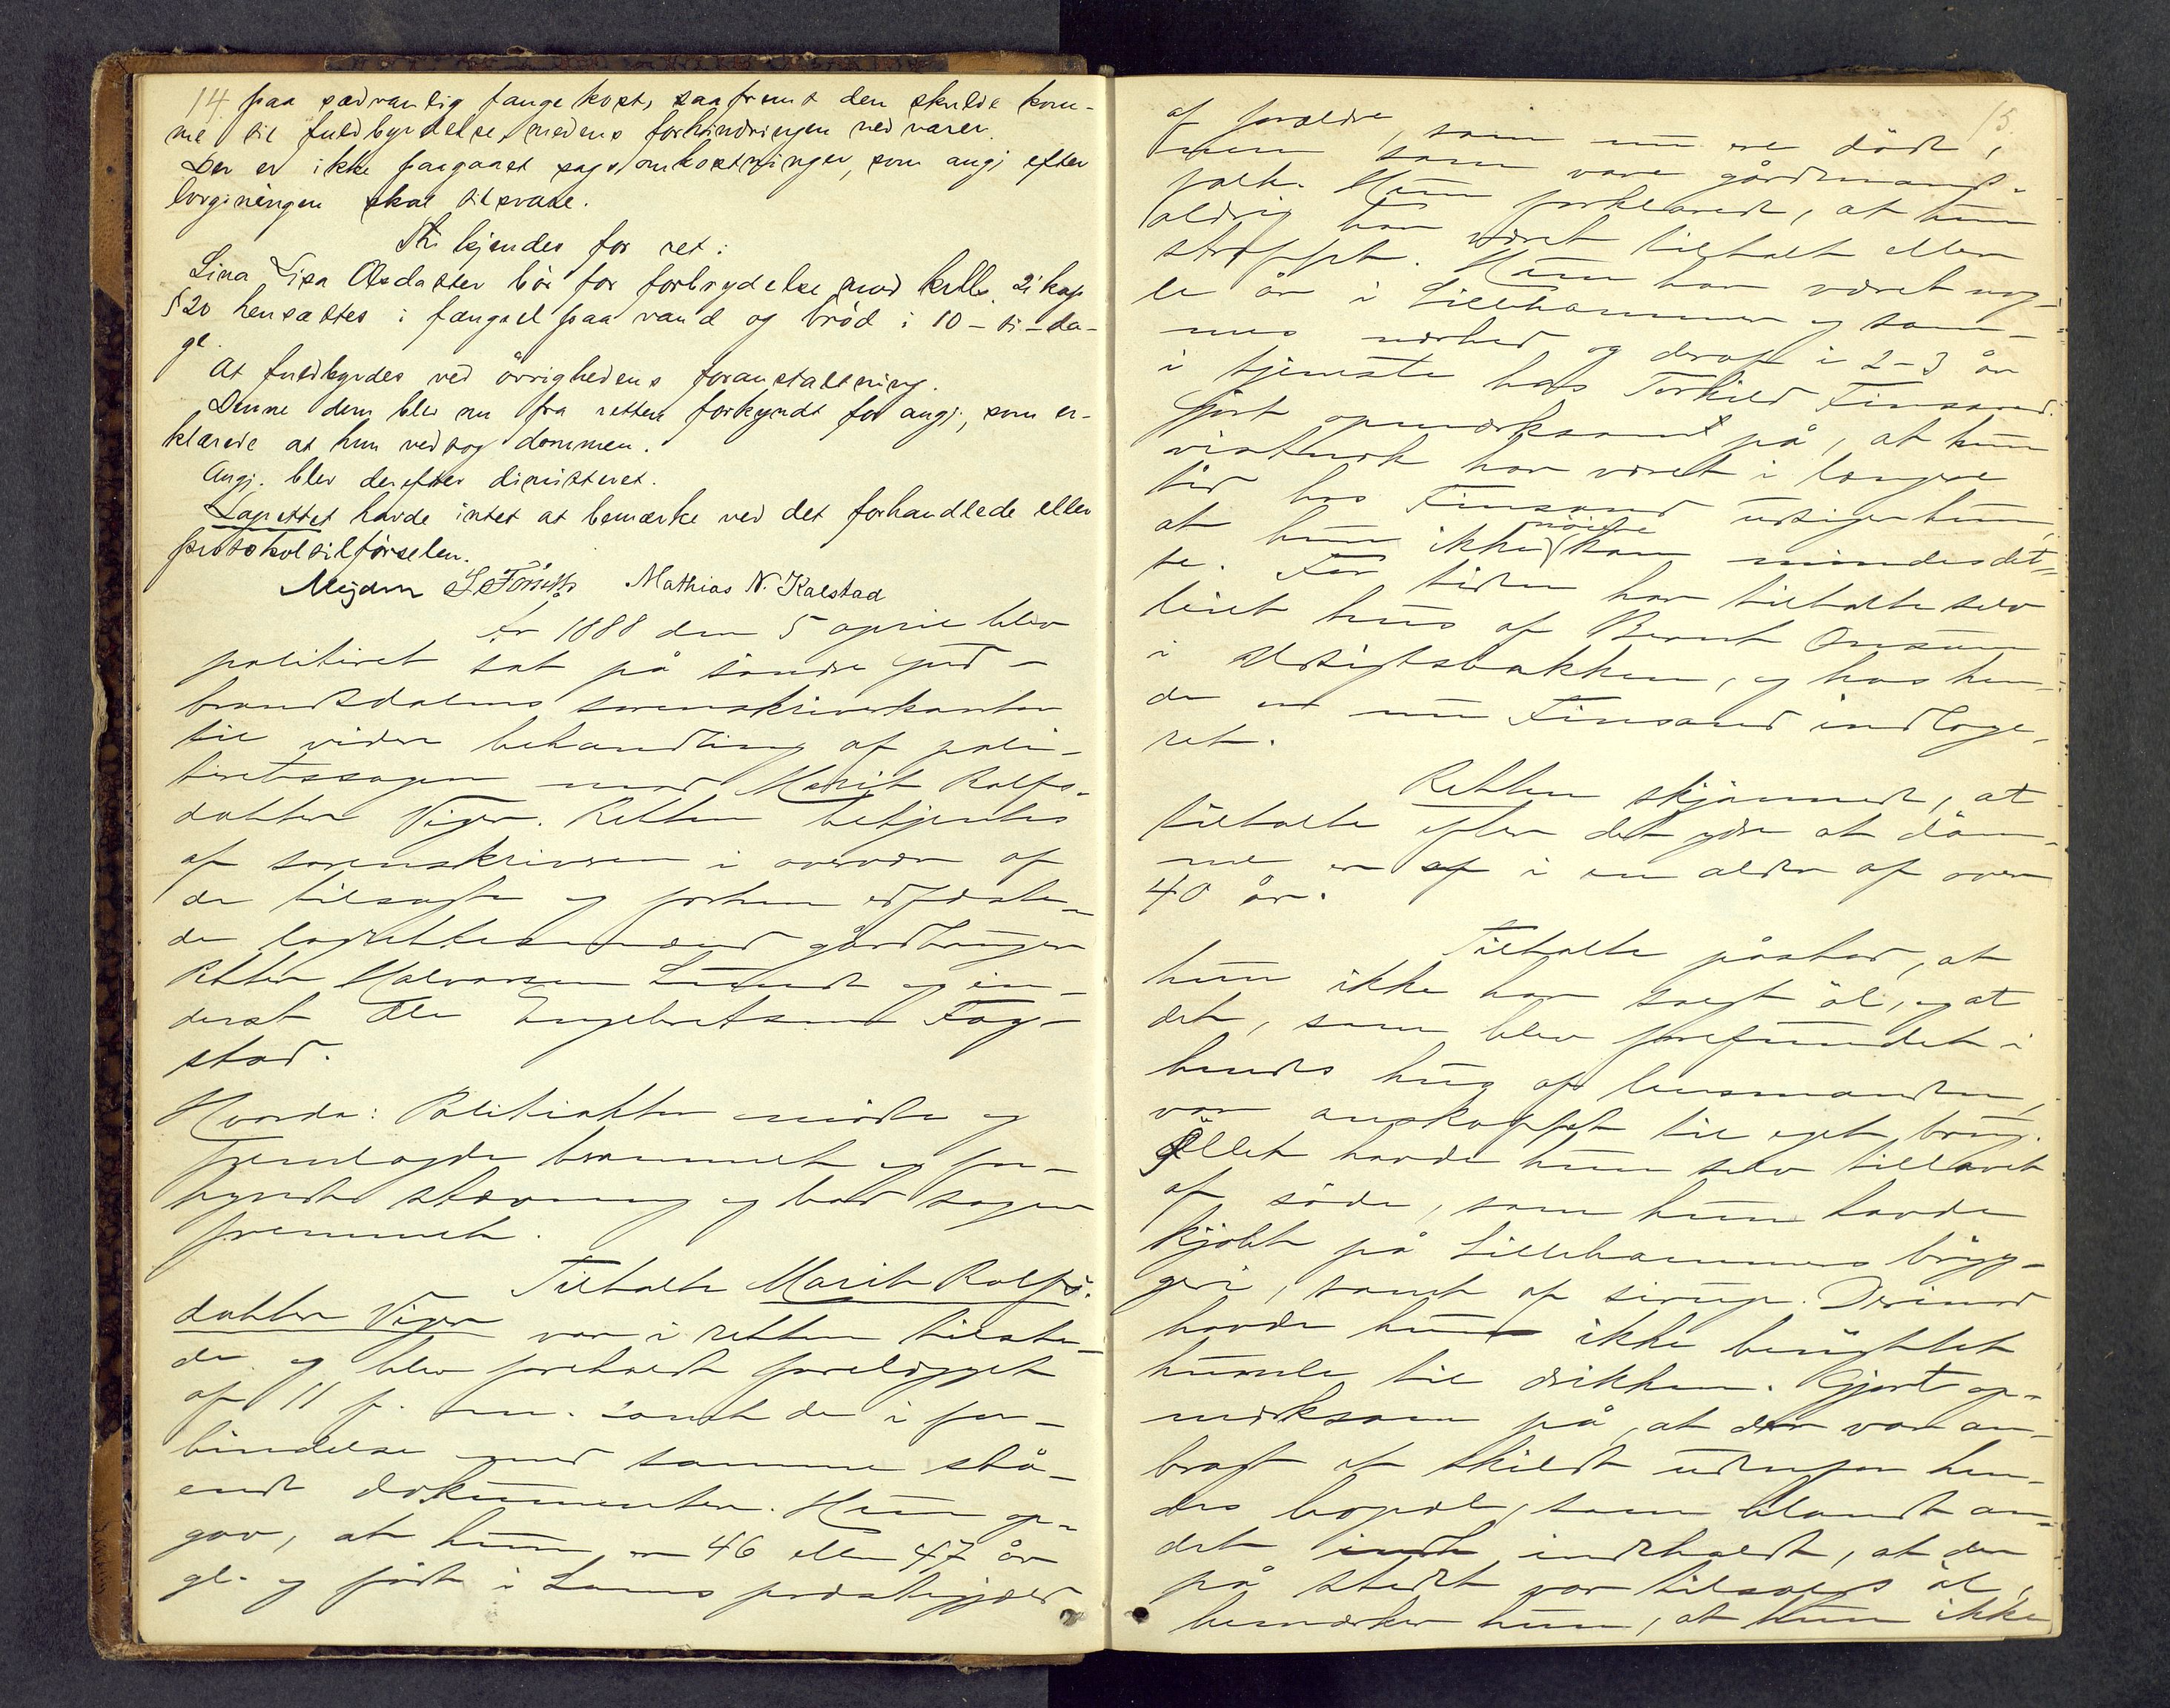 14 paa sædvanlig fangekost, saafremt den skulde kom-
me til fuldbyrdelse medens forhindringen ved varer.
Der er ikke paagaaet sagsomkostninger, som angj. efter
lovgivningen skal tilsvare.
Thi kjendes for ret:
Lina Lisa Olsdatter bör for forbrydelse mod krlls. 21 kap
§ 20 hensættes i fængsel paa vand og bröd i 10 - ti - da-
ge.
At fuldbyrdes ved övrighedens foranstaltning.
Denne dom blev nu fra retten forkyndt for angj., som er-
klærede at hun vedtog dommen.
Angj. blev derefter dimitteret.
Lagrettet havde intet at bemærke ved det forhandlede eller
protokoltilförselen.
Mejdem Mathias N. Kalstad
År 1888 den 5 april blev
politiret sat på söndre Gud-
brandsdalens sorenskriverkontor
til videre behandling af poli-
tiretssagen mod Marit Rolfs-
datter Viger. Retten betjentes
af sorenskriveren i overvær af
de tilsagte og forhen edfæste-
de lagrettesmænd gårdbruger
Petter Halvorsen og in-
derst Ole Engebretsen Fag-
stad.
Hvorda: Politiakter mödte og
fremlagde berammet og for-
kyndt stævning og bad sagen
fremmet.
Tiltalte Marit Rolfs-
datter Viger var i retten tilste-
de og blev foreholdt forelægget
af 11 f. m. samt de i for-
bindelse med samme stå-
ende dokumenter. Hun op-
gav, at hun er 46 eller 47 år
gl. og födt i Loms præstegjæld
15.
af forældre, som nu ere döde,
men som vare gårdmands-
folk. Hun forklarede, at hun
aldrig har været tiltalt eller
straffet. Hun har været nog-
le år i Lillehammer og sam-
mes nærhed og deraf i 2-3 år
i tjeneste hos Torkild Finsand.
Gjort opmærksom på, at hun
vistnok har været i længere
tid hos Finsand udsiger hun,
at hun ikke nöie kan mindes det-
te. For tiden har tiltalte selv
leiet hus af Bernt Onsum
i Udsigtsbakken, og hos hen-
de er nu Finsand indloge-
ret.
Retten skjönnede, at
tiltalte efter det ydre at döm-
me er i en alder af over
40 år.
Tiltalte påstod, at
hun ikke har solgt öl, og at
det, som blev forefundet i
hendes hus af lensmanden,
var anskaffet til eget brug.
Öllet havde hun selv tillavet
af söde, som hun havde
kjöbt på Lillehammers bryg-
geri, samt af sirup. Derimod
havde hun ikke benyttet
humle til drikken. Gjort op-
mærksom på, at der var an-
bragt et skildt udenfor hen-
des bopæl, som blandt an-
det indeholdt, at der
på stedet var tilsalgs öl,
bemærker hun, at hun ikke